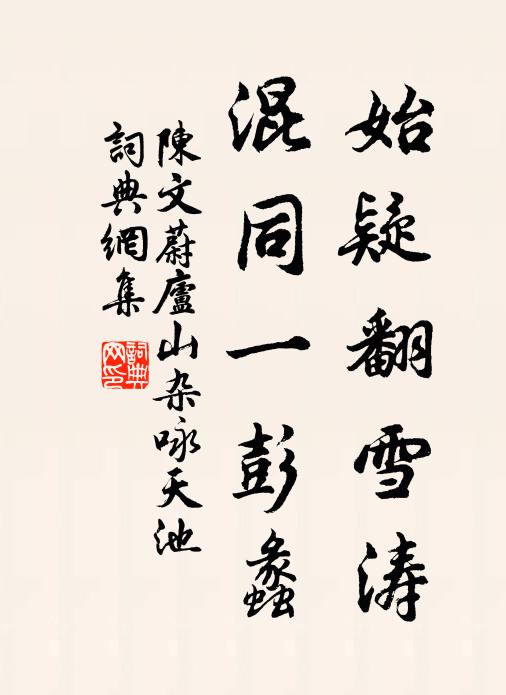 始疑翻雪涛
混同一彭蠡
陳文蔚廬山杂咏天池
詞典網集
詞典网印